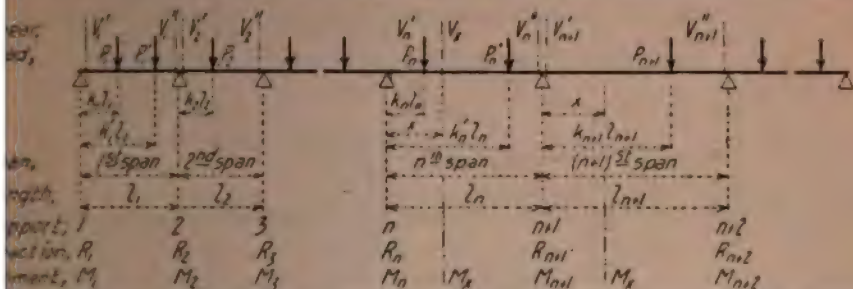 V₁' V₁" V₂' V₂" Vₙ' Vₓ Vₙ" V'ₙ₊₁ V"ₙ₊₁
P₁ P₁' P₂ Pₙ Pₙ' Pₙ₊₁
k₁l₁ k₂l₂ kₙlₙ x
k₁'l₁ x kₙ'lₙ kₙ₊₁lₙ₊₁
1st span 2nd span nth span (n+1)st span
l₁ l₂ lₙ lₙ₊₁
1 2 3 n n+1 n+2
R₁ R₂ R₃ Rₙ Rₙ₊₁ Rₙ₊₂
M₁ M₂ M₃ Mₙ Mₓ Mₙ₊₁ Mₓ Mₙ₊₂